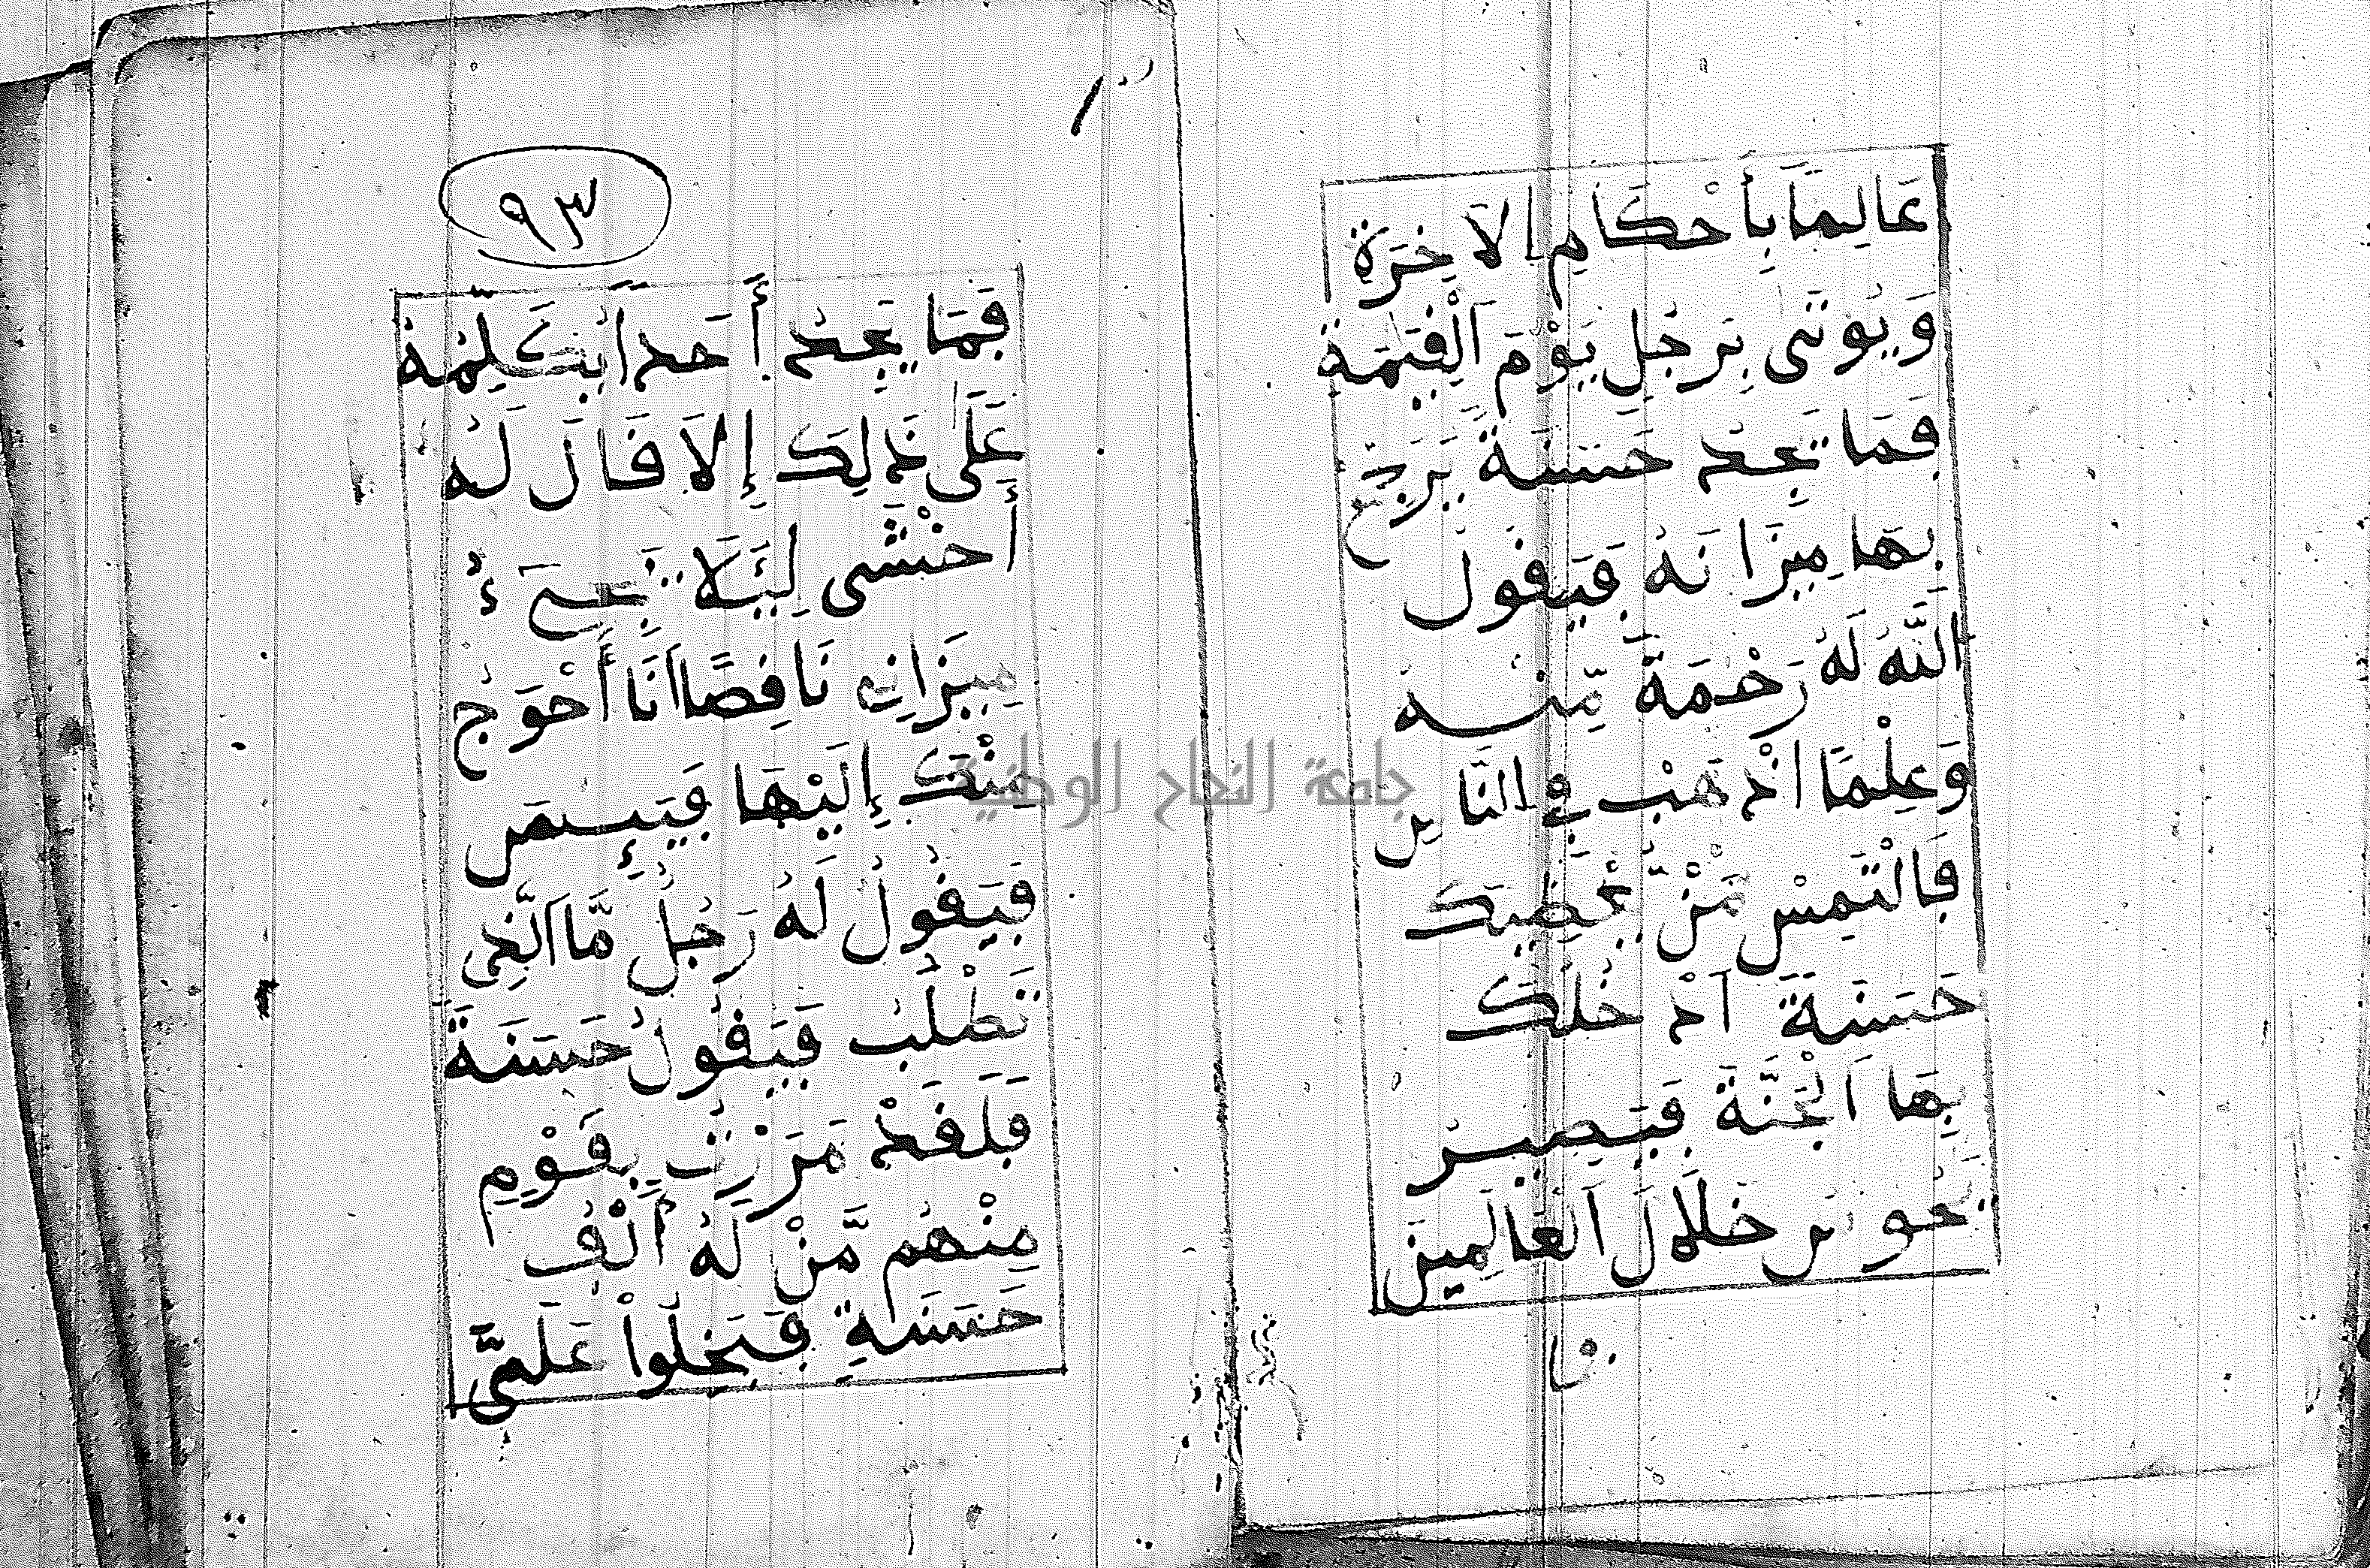 عَالِمًا بِأَحْكَامِ الآخِرَةِ
وَيُوتَى بِرَجُلٍ يَوْمَ الْقِيَمَةِ
فَمَا يَجِدُ حَسَنَةً يَرْجَحُ
بِهَا مِيزَانَهُ فَيَقُولُ
اللَّهُ لَهُ رَحْمَةً مِّنْهُ
وَعِلْمًا اذْهَبْ فِي النَّاسِ
فَالْتَمِسْ مَنْ يُّعْطِيكَ
حَسَنَةً أُدْخِلُكَ
بِهَا الْجَنَّةَ فَيَصِيرُ
يَجُوسُ خِلَالَ الْعَالَمِينَ
فما
٩٣
فَمَا يَجِدُ أَحَدًا يُكَلِّمُهُ
عَلَى ذَلِكَ إِلَّا قَالَ لَهُ
أَخْشَى لِيَلَّا يَجِيءَ
مِيزَانِي نَاقِصًا أَنَا أَحْوَجُ
مِنْكَ إِلَيْهَا فَيَيْئَسُ
فَيَقُولُ لَهُ رَجُلٌ مَّا الَّذِي
تَطْلُبُ فَيَقُولُ حَسَنَةً
فَلَقَدْ مَرَرْتُ بِقَوْمٍ
مِنْهُم مَّنْ لَهُ أَلْفُ
حَسَنَةٍ فَبَخِلُوا عَلَيَّ
جامعة النجاح الوطنية